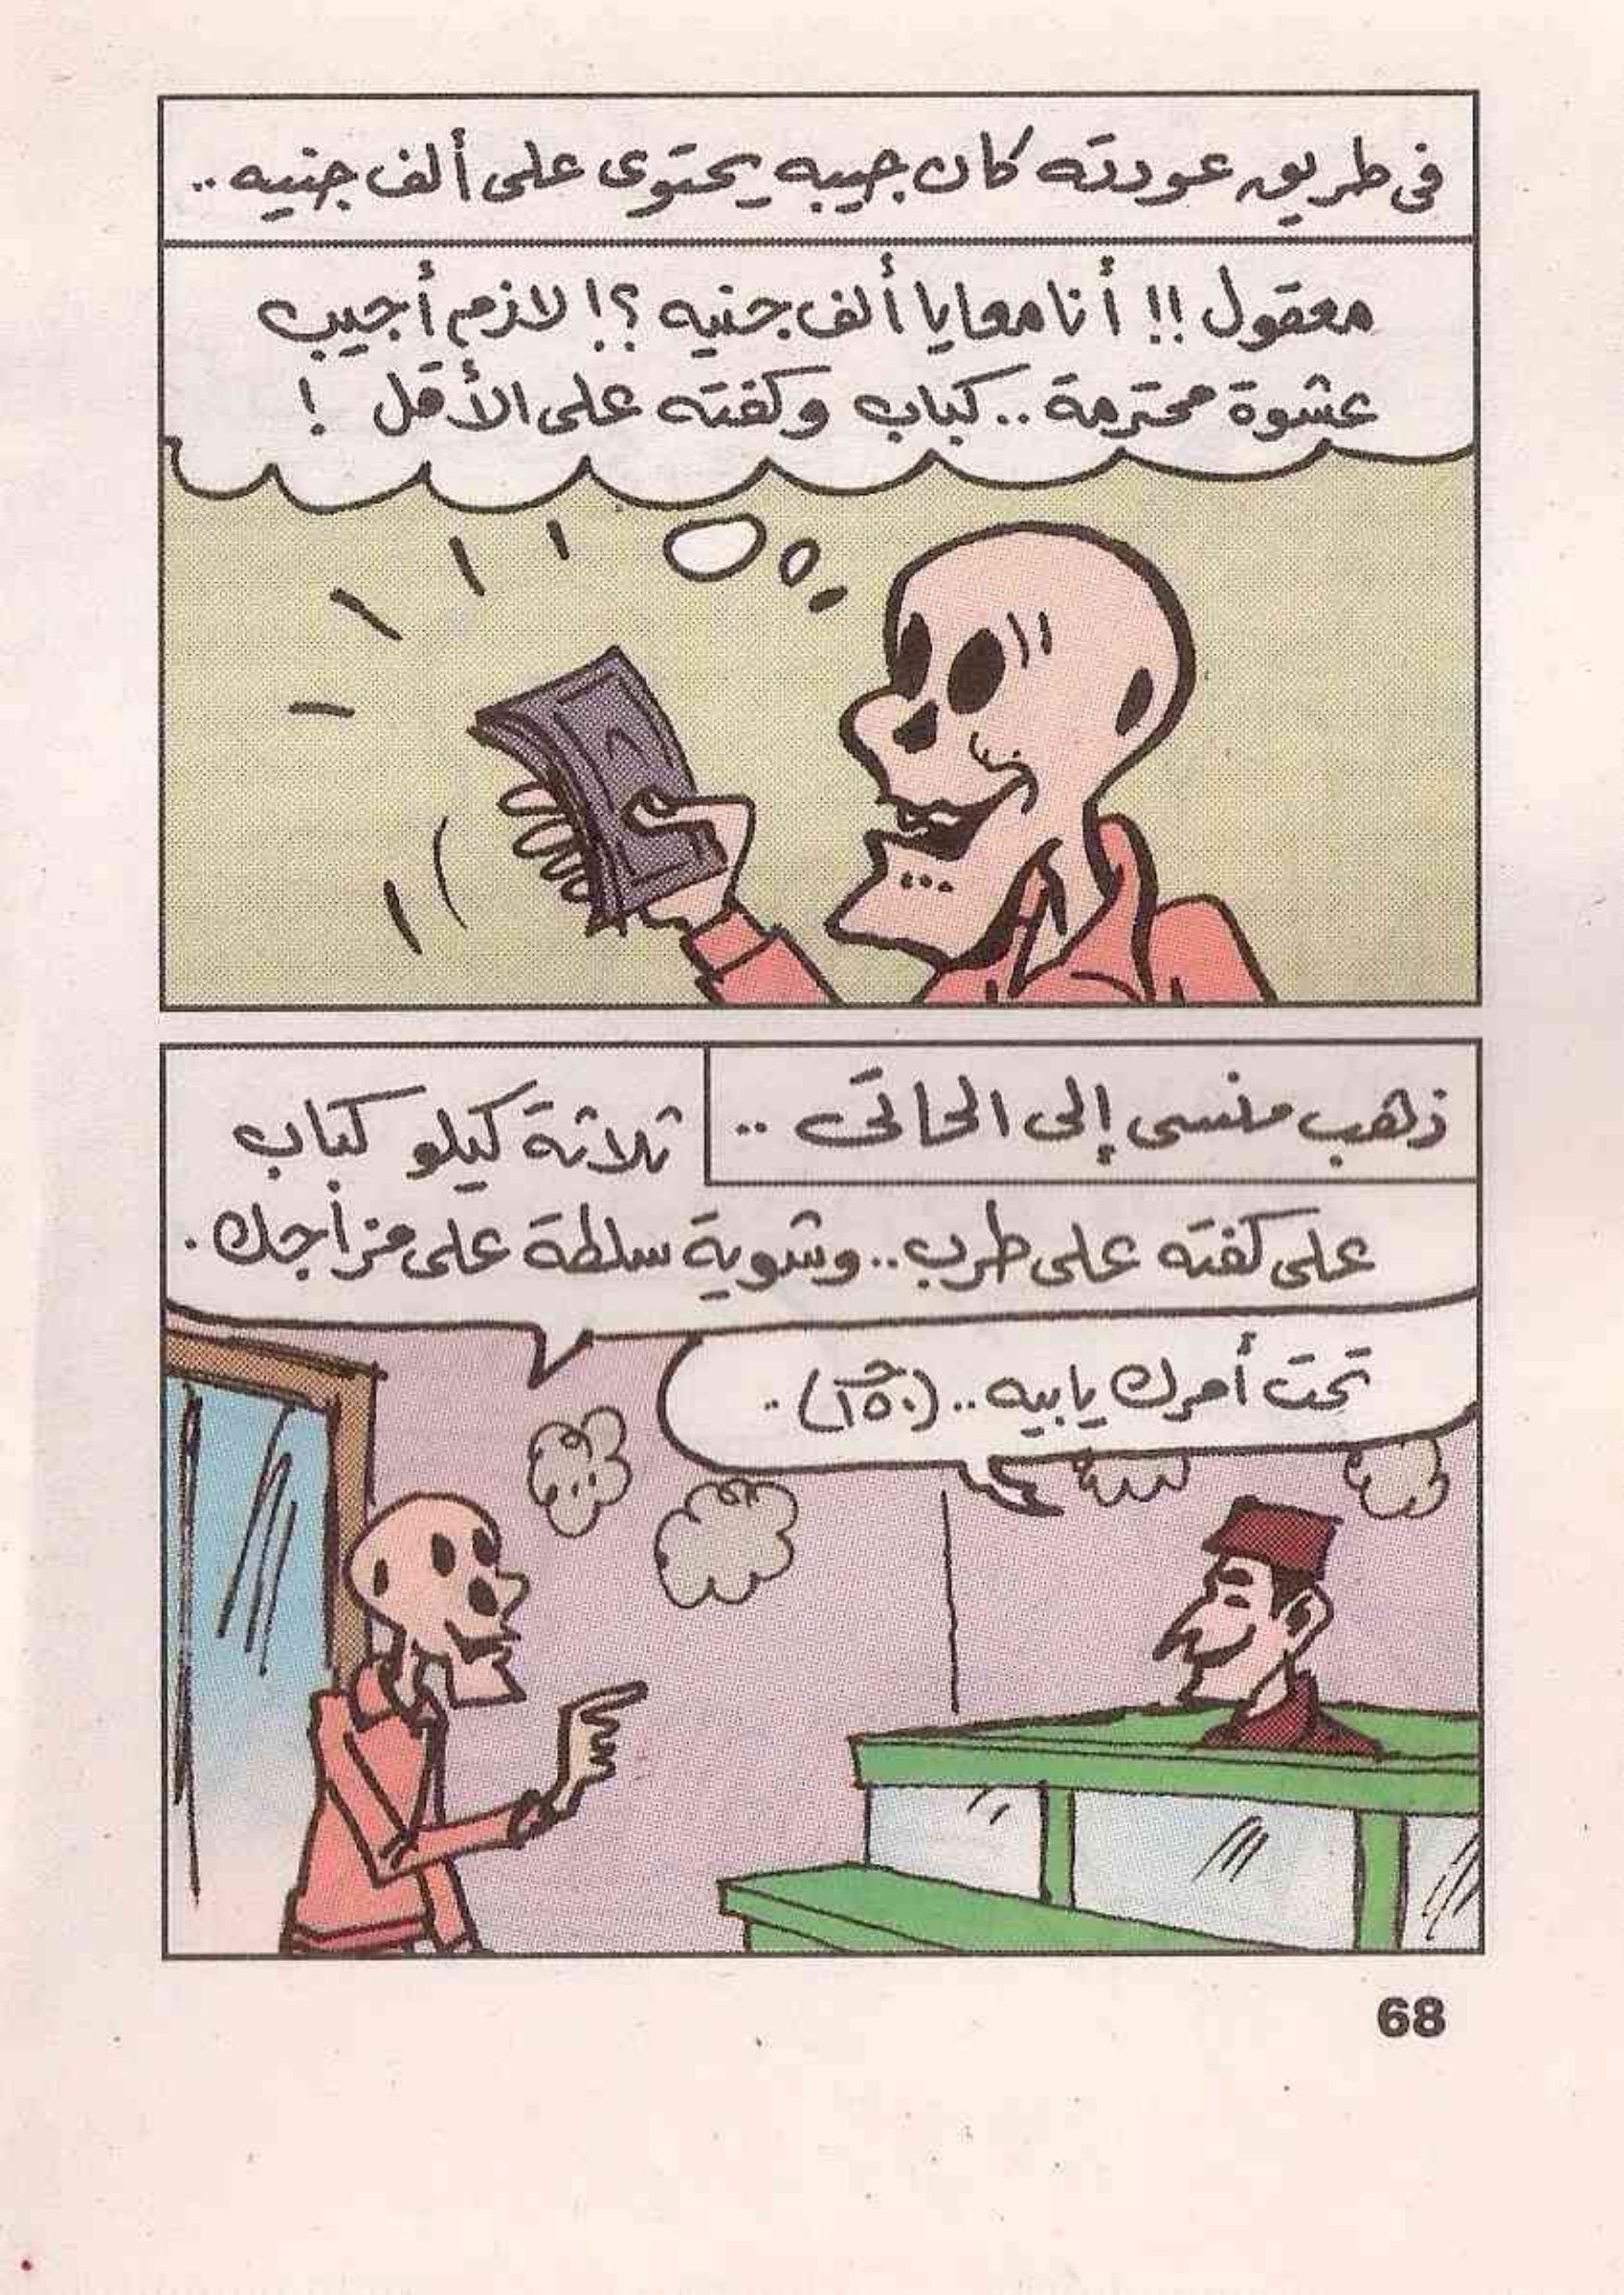 فى طريق عودته كان جيبه يحتوى على ألف جنيه ..
معقول !! أنا معايا ألف جنيه ؟! لازم أجيب
عشوة محترمة .. كباب وكفته على الأقل !
ذهب منسى إلى الحاتى ..
ثلاثة كيلو كباب
على كفته على طرب .. وشوية سلطة على مزاجك .
تحت أمرك يا بيه .. (١٥٠ جـ) ..
68